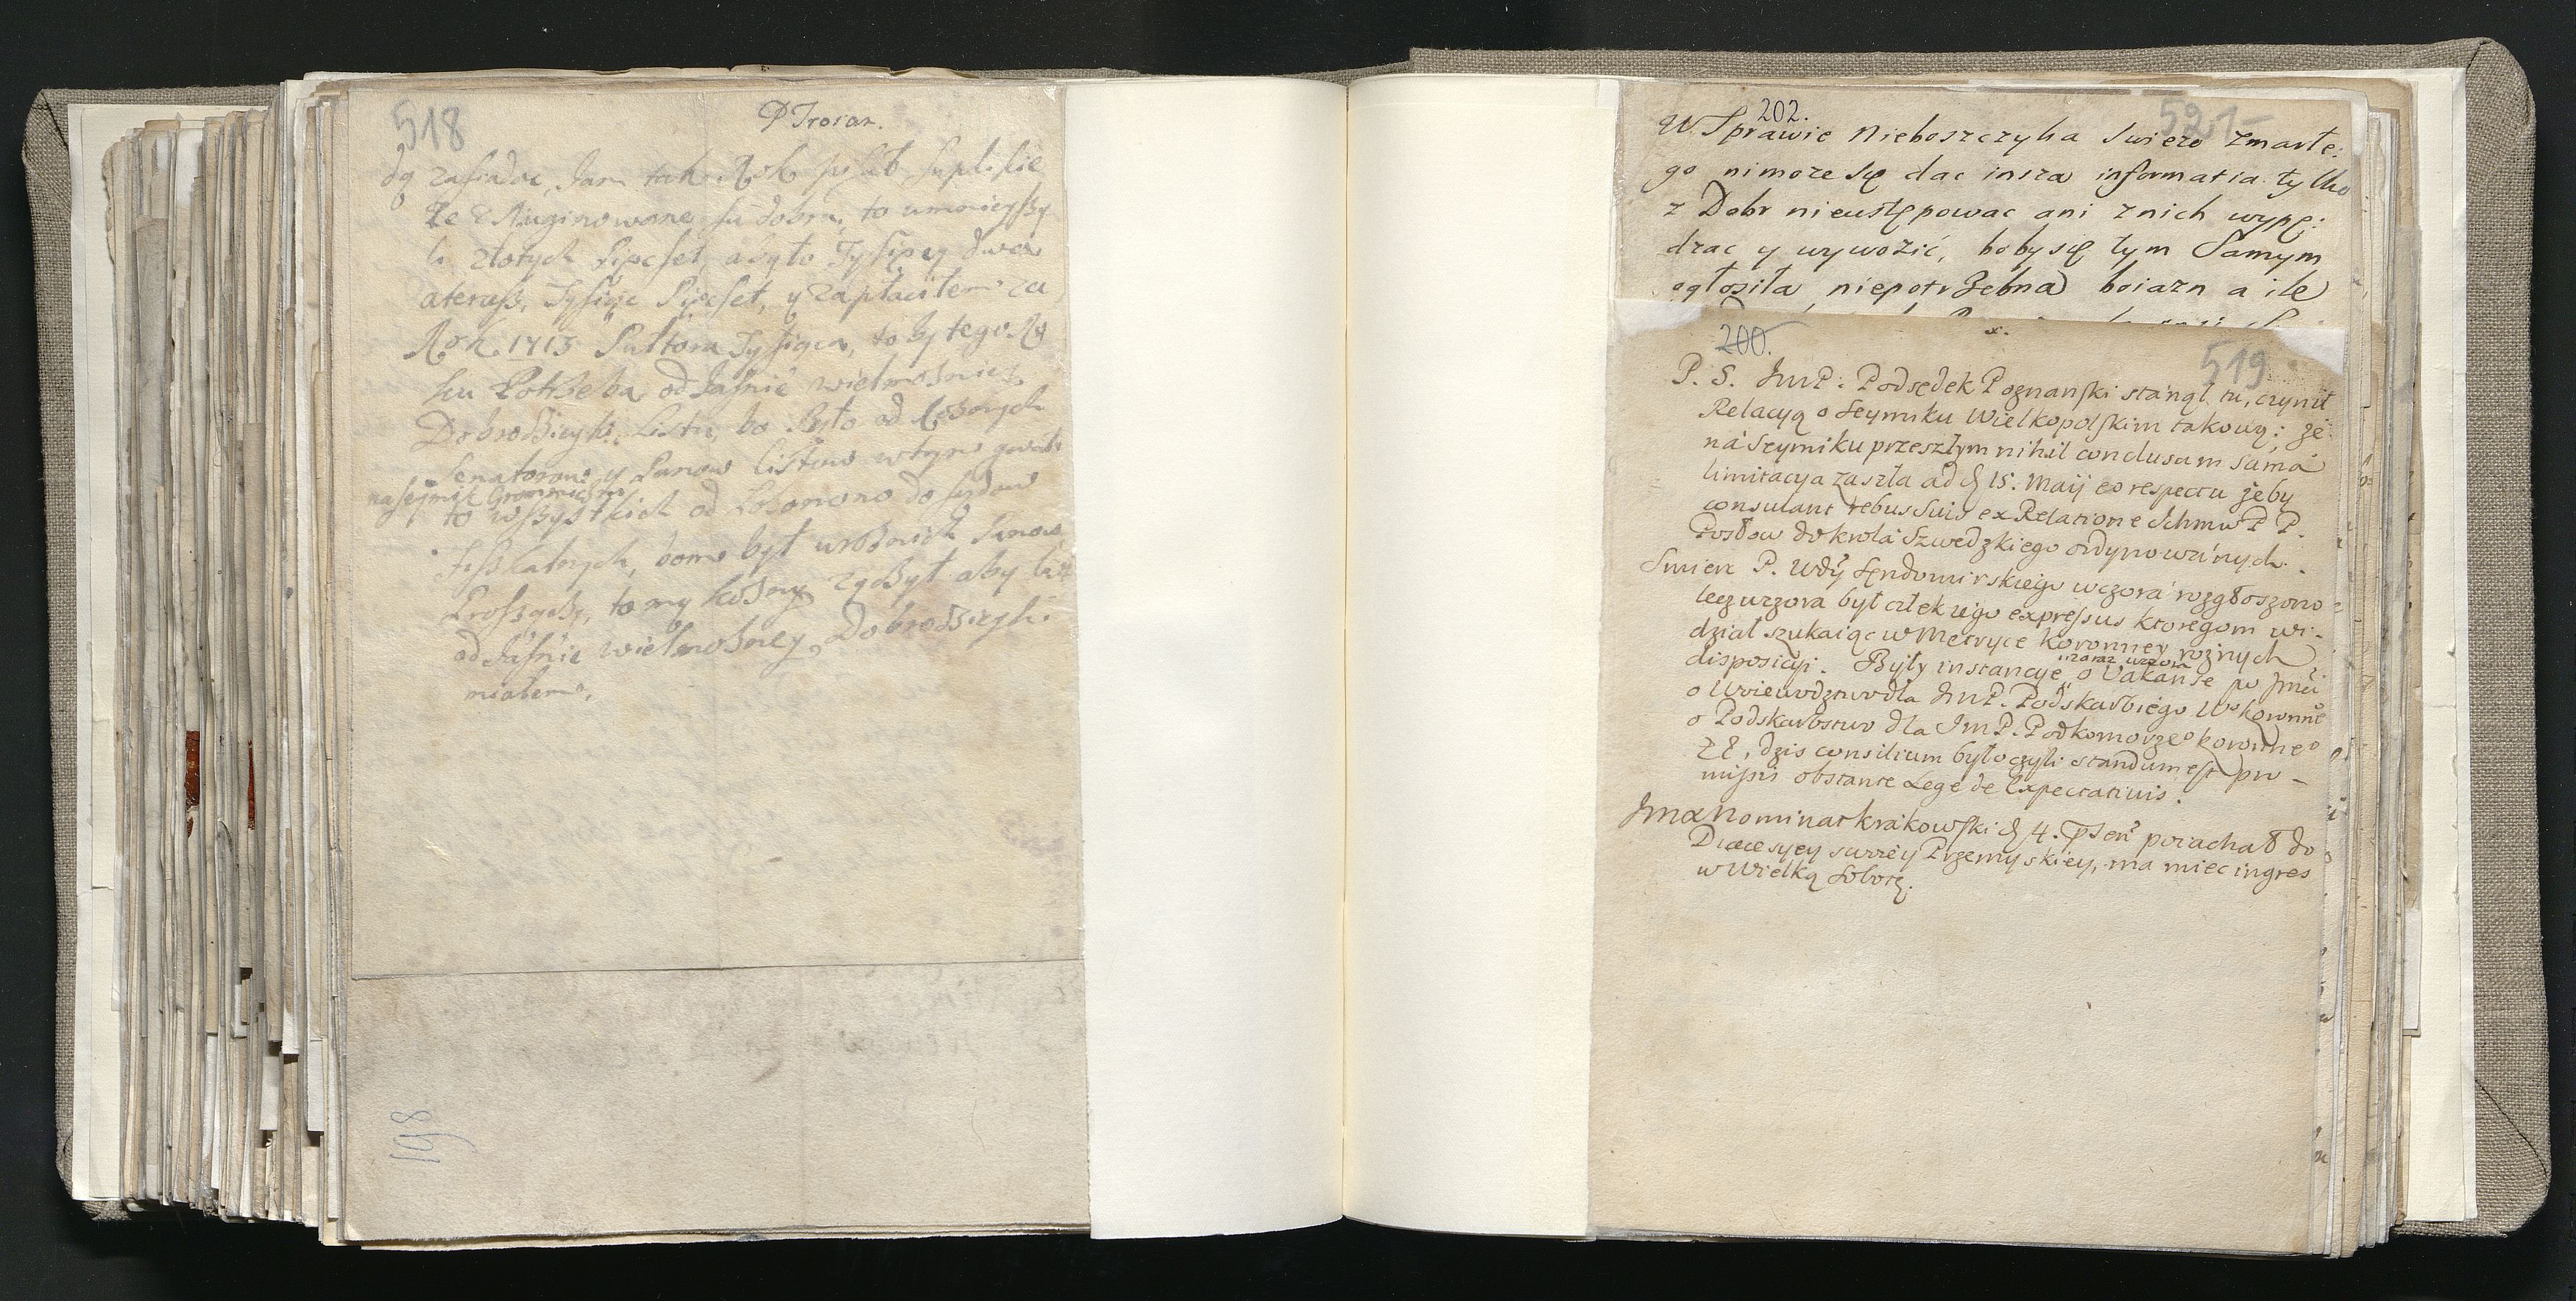 518
P Troian.
dą zasiadac, Jam tak Rok pisał Suplikie
że zRuginowane są dobra, to umnieyszy
li złotych Pięcset, a było Tysięcy dwa
ateraz, Tysiąc Pięcset, y zapłaciłem za
Rok 1713 Pułtora Tysiąca, to by tego Ro
ku Potrzeba od Jaśnie wielmożnie
Dobrodzieyki Listu, bo Było od
Senatorow y Panow listow wtym
na seymik
to wszystkich od do sądow
bom był urożnich Panow
Proszący, to my każdy aby list
od Jaśnie wielmożney Dobrodzieyki
miałem.
198
202.
521
W Sprawie Nieboszczyka Swiezo Zmarłe:
go nimoze się dac insza informatia tylko
z Dobr nieustępowac ani znich wypę:
dzac y wywozić, boby się tym Samym
ogłosiła niepotrzebna boiazn a ile
200.
x.
519
P. S. JmP: Podsędek Poznanski stánął tu, czynił
Relacyą o Seymiku Wielkopolskim takową; że
ná Seymiku przeszłym nihil conclusum sama
limitacya zaszła ad d 15. Maij eo respectu żeby
consulant rebus Suis ex Relatione Ichmw P P.
Posłow do krola Szwedzkiego ordynowánych.
Smierc P. Wdy Sendomirskiego wczora rozgłoszono
lecz wczora był człek iego expressus ktoregom wi-
dział szukaiąc w Metryce Koronney rożnych
disposicyi. Były instancye zaraz wczora o Vakanse po Jmći
o Woiewodztwo dla JmP. Podskarbiego Wo koronne
o Podskarbstwo dla JmP. Podkomorzeo koronneo
dzis consilium było czyli standum est pro-
missis obstante Lege de Expectativis.
Jmx Nominat krakowski d 4. poiachał do
Dioecesyey swoiey Przemyskiey, ma miec ingres
w Wielką Sobotę.